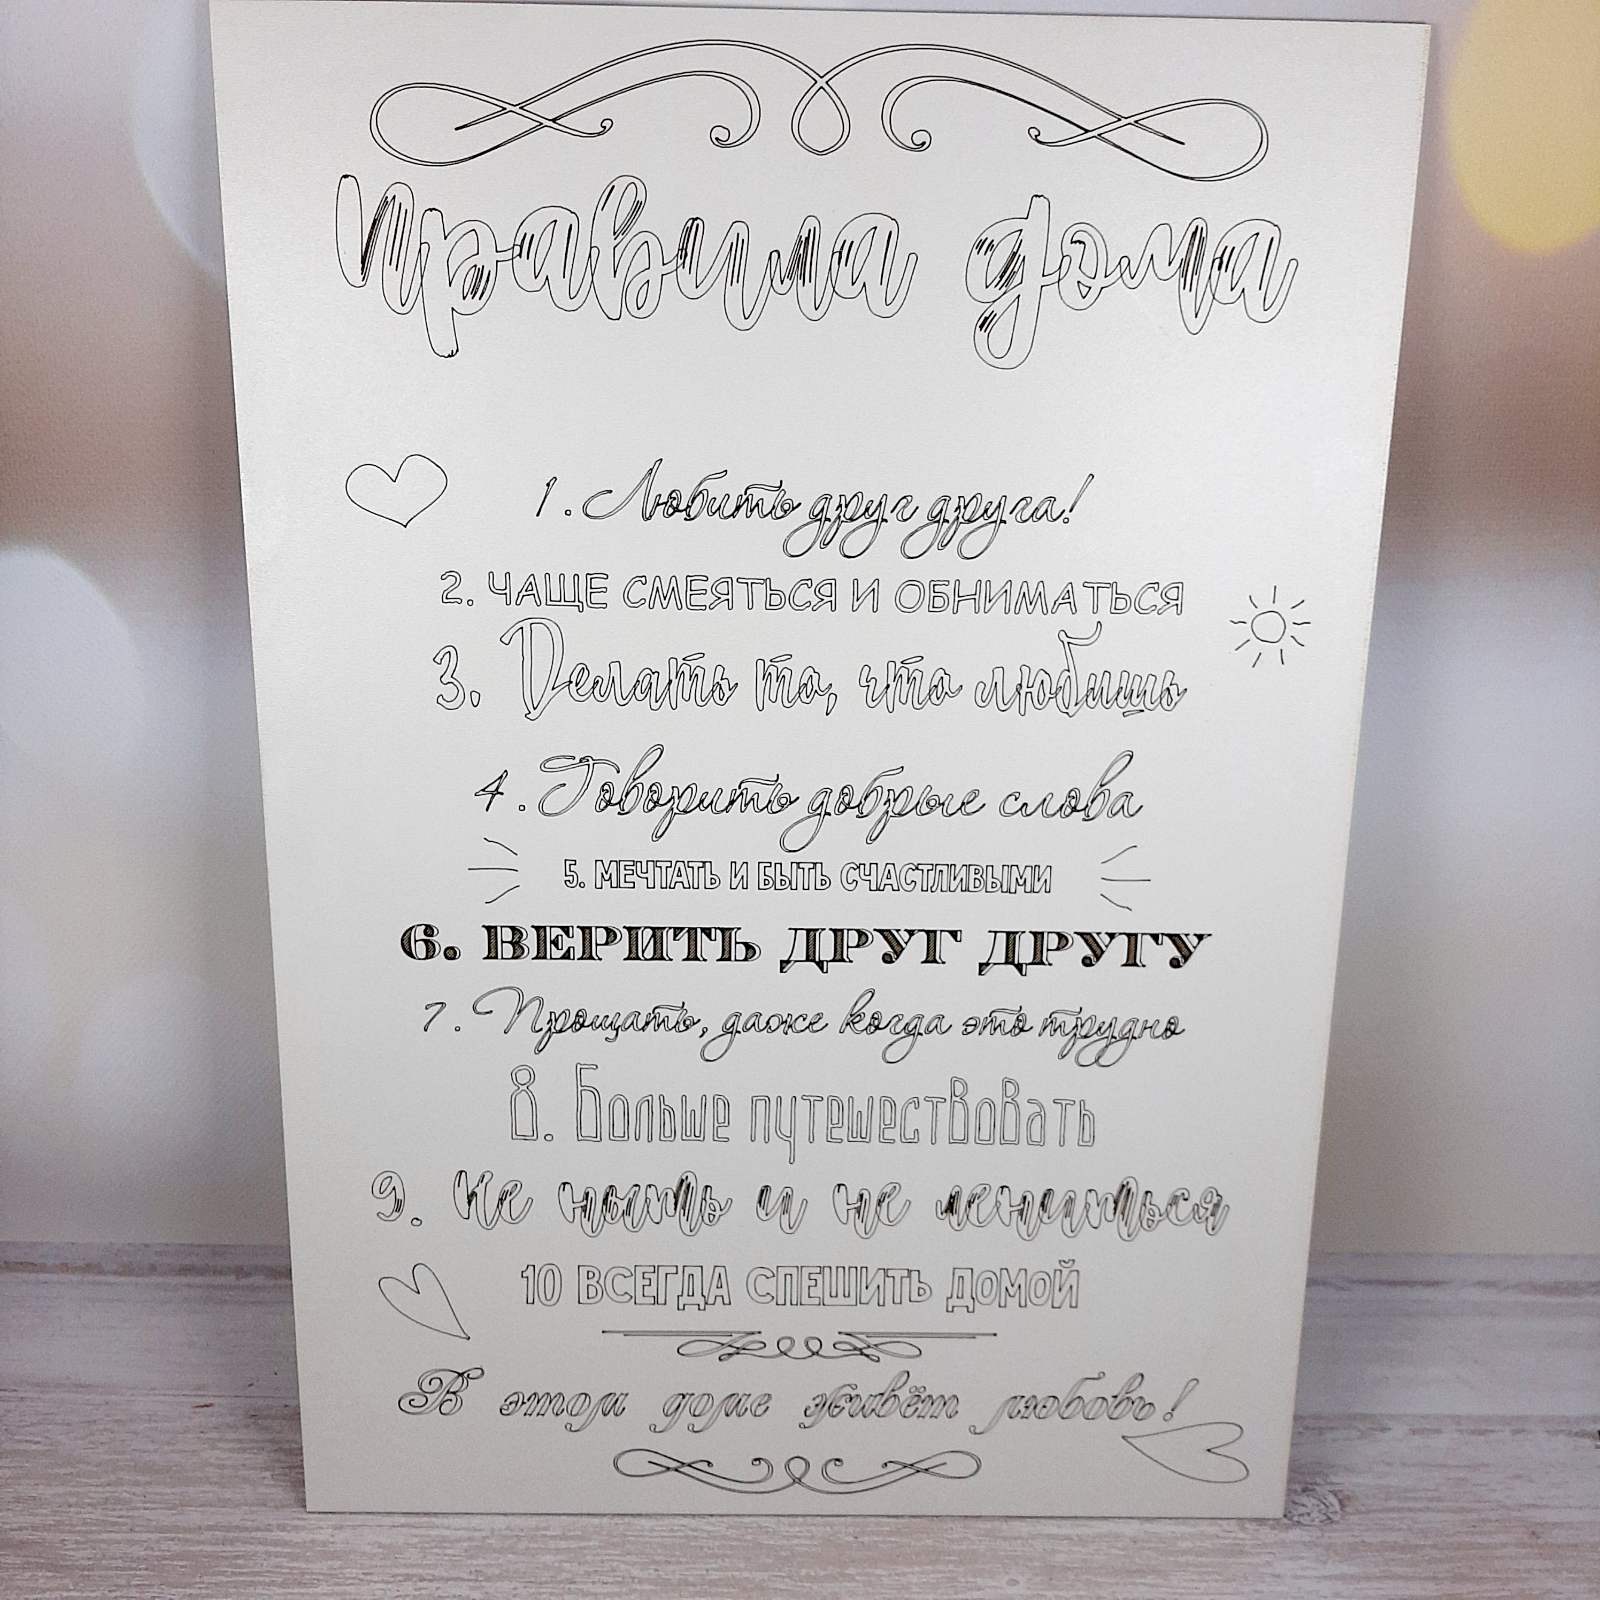 правила дома
1. Любить друг друга!
2. ЧАЩЕ СМЕЯТЬСЯ И ОБНИМАТЬСЯ
3. Делать то, что любишь
4. Говорить добрые слова
5. МЕЧТАТЬ И БЫТЬ СЧАСТЛИВЫМИ
6. ВЕРИТЬ ДРУГ ДРУГУ
7. Прощать, даже когда это трудно
8. Больше путешествовать
9. Не ныть и не лениться
10 ВСЕГДА СПЕШИТЬ ДОМОЙ
В этом доме живёт любовь!